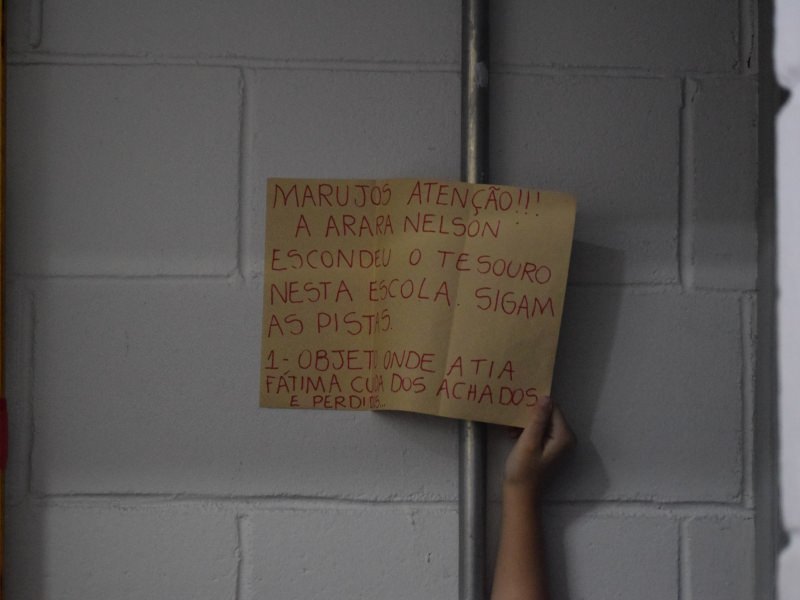 MARUJOS ATENÇÃO!!!
A ARARA NELSON
ESCONDEU O TESOURO
NESTA ESCOLA. SIGAM
AS PISTAS.
1- OBJETO ONDE A TIA
FÁTIMA CUIDA DOS ACHADOS
E PERDIDOS...